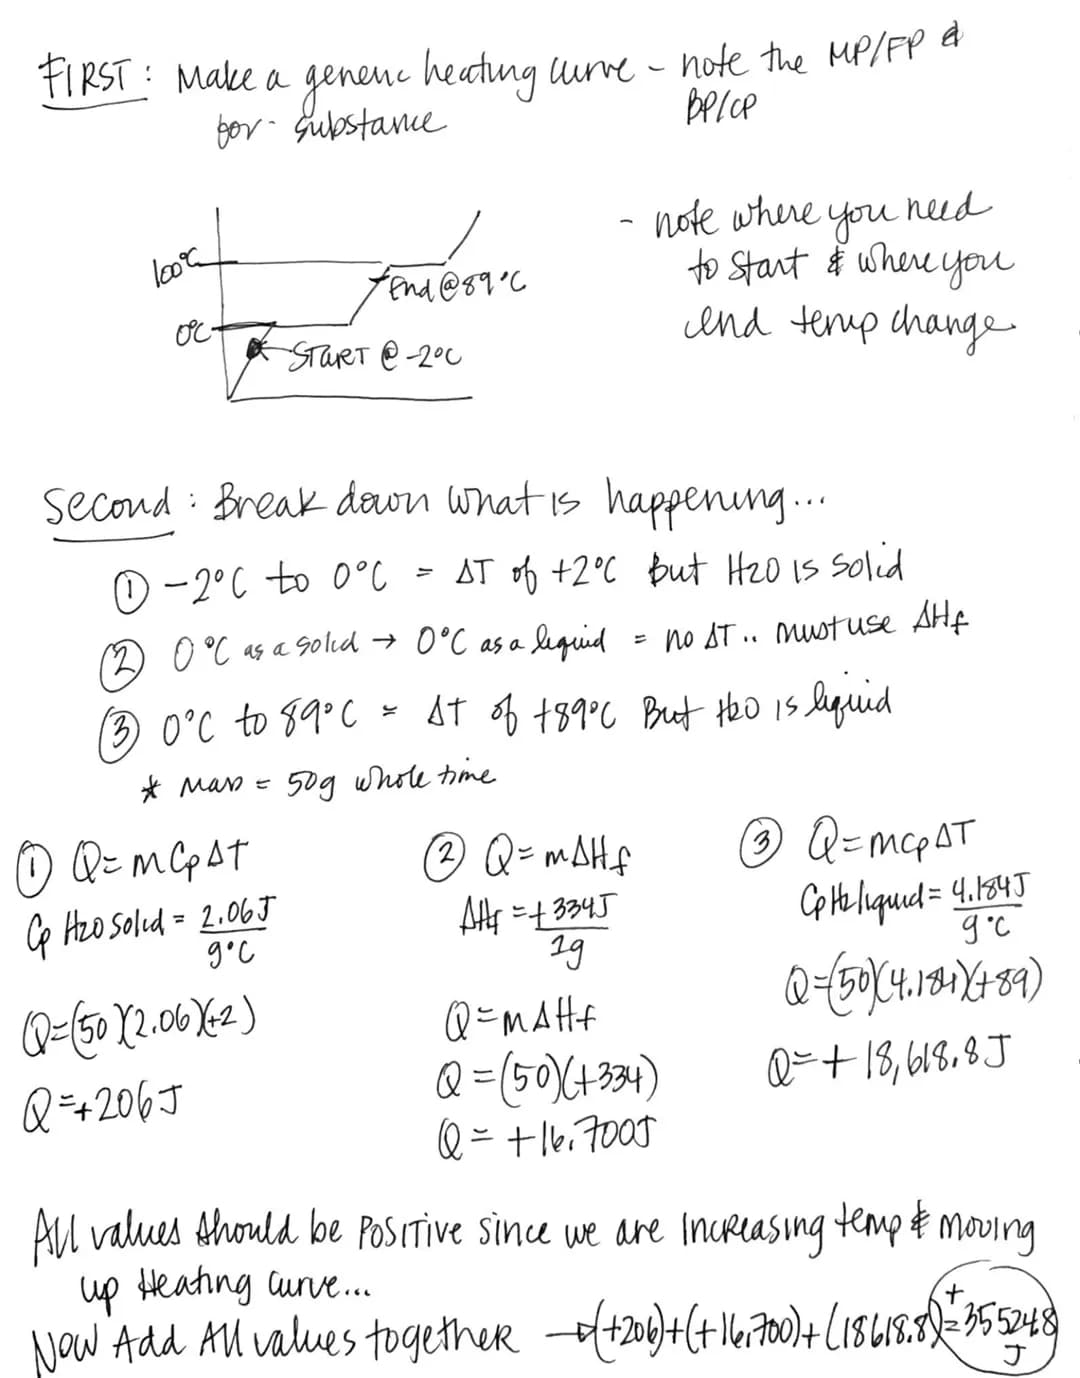 FIRST : Make a generic heating curve - note the MP/FP &
for - substance BP/CP
- note where you need
to start & where you
end temp change
100°C
End @ 89°C
0°C
START @ -2°C
Second : Break down what is happening...
① -2°C to 0°C = ΔT of +2°C But H2O is solid
② 0°C as a solid → 0°C as a liquid = no ΔT .. must use ΔHf
③ 0°C to 89°C = ΔT of +89°C But H2O is liquid
* Mass = 50g whole time
① Q = mCpΔt
Cp H2O solid = 2.06J
g°C
Q=(50)(2.06)(+2)
Q=+206J
② Q = mΔHf
ΔHf = +334J
1g
Q = mΔHf
Q = (50)(+334)
Q = +16,700J
③ Q = mcpΔT
Cp H2 liquid = 4.184J
g°C
Q=(50)(4.184)(+89)
Q=+18,618.8J
All values should be POSITIVE since we are INCREASING temp & moving
up Heating Curve...
Now Add All values together →(+206)+(+16,700)+(18618.8)=+355248
J